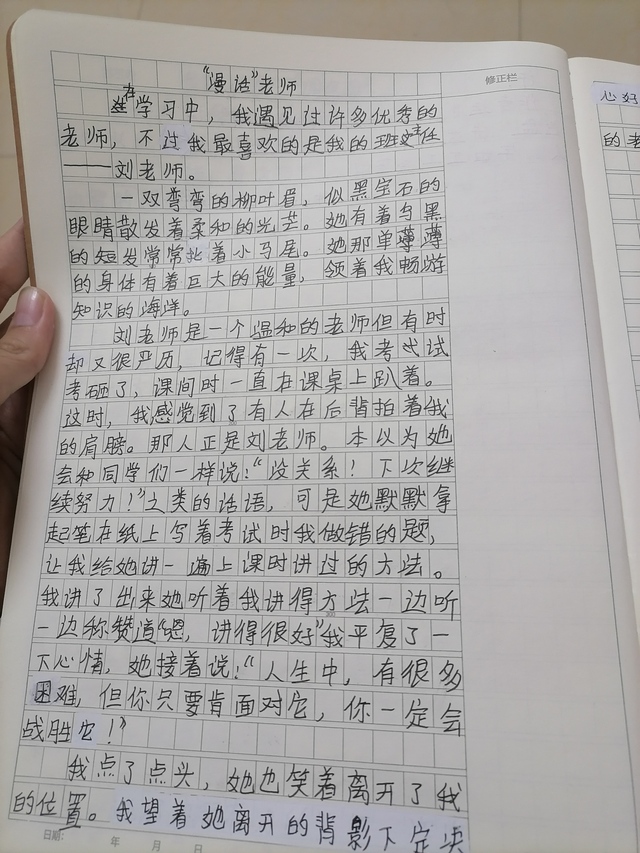 "漫话"老师
修正栏
在学习中，我遇见过许多优秀的
老师，不过我最喜欢的是我的班主任
——刘老师。
一双弯弯的柳叶眉，似黑宝石的
眼睛散发着柔和的光芒。她有着乌黑
的短发常常扎着小马尾。她那单薄薄
的身体有着巨大的能量，领着我畅游
知识的海洋。
刘老师是一个温和的老师但有时
却又很严历，记得有一次，我考试
考砸了，课间时一直在课桌上趴着。
这时，我感觉到了有人在后背拍着我
的肩膀。那人正是刘老师。本以为她
会和同学们一样说："没关系！下次继
续努力！"之类的话语，可是她默默拿
起笔在纸上写着考试时我做错的题，
让我给她讲一遍上课时讲过的方法。
我讲了出来她听着我讲得方法一边听
一边称赞道"嗯，讲得很好"我平复了一
下心情，她接着说："人生中，有很多
困难，但你只要肯面对它，你一定会
战胜它！"
我点了点头，她也笑着离开了我
的位置。我望着她离开的背影下定决
日期： 年 月 日
心好
的老